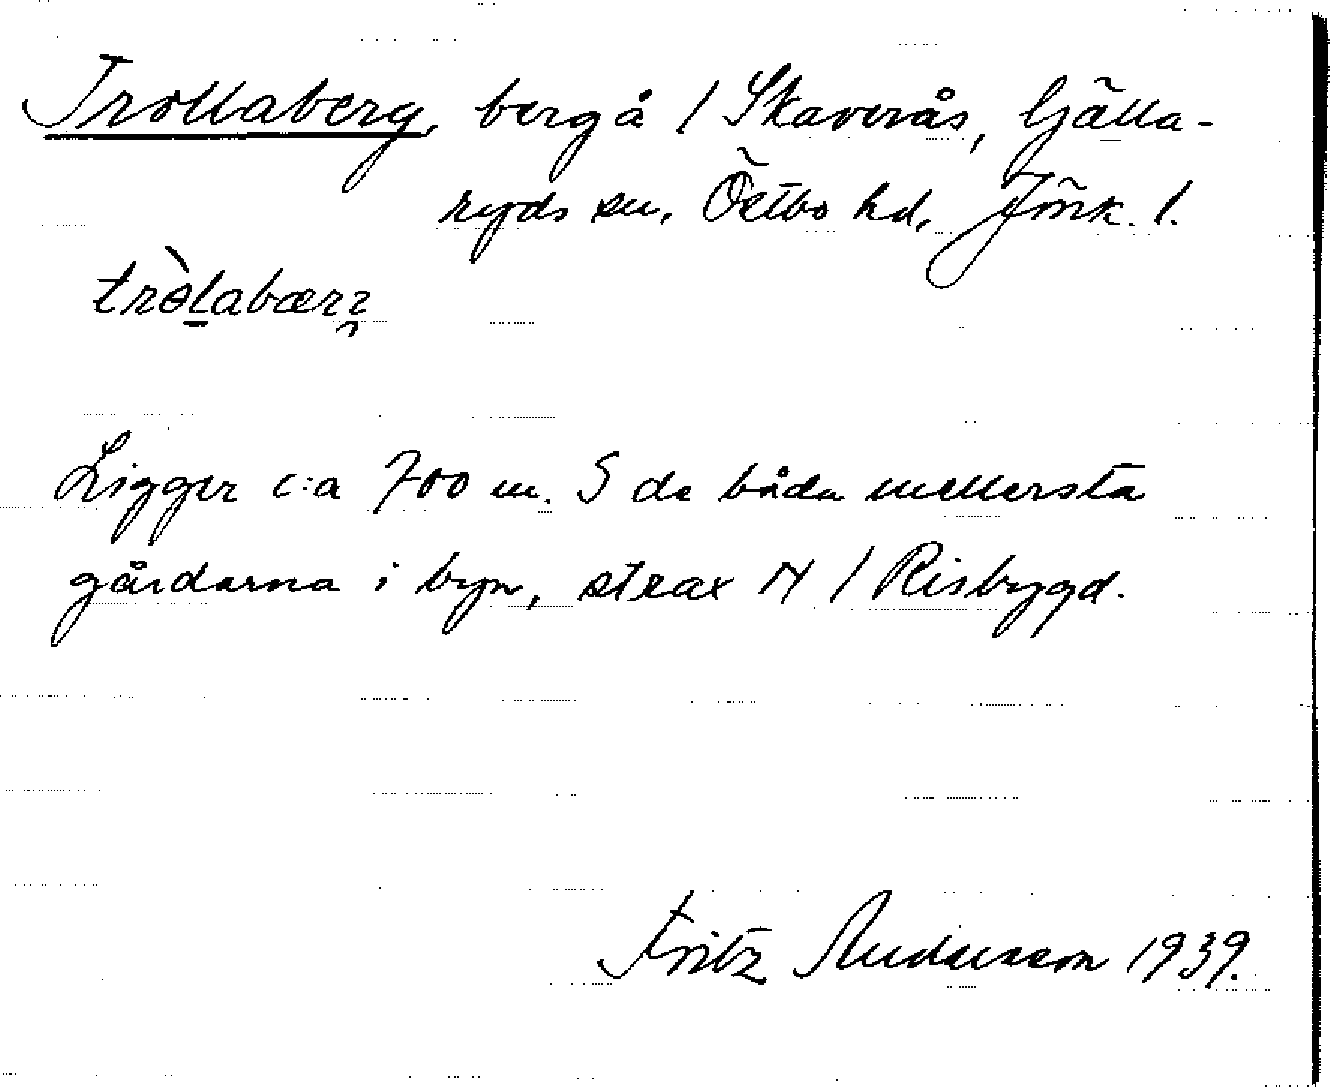 Trollaberg, berg å / Skaverås, Gjälla-
ryds sn, Östbo hd, Jönk. l.
Ligger c:a 700 m. S de båda mellersta
gårdarna i byn, strax N / Risbygd.
Fritz Andersson 1939.